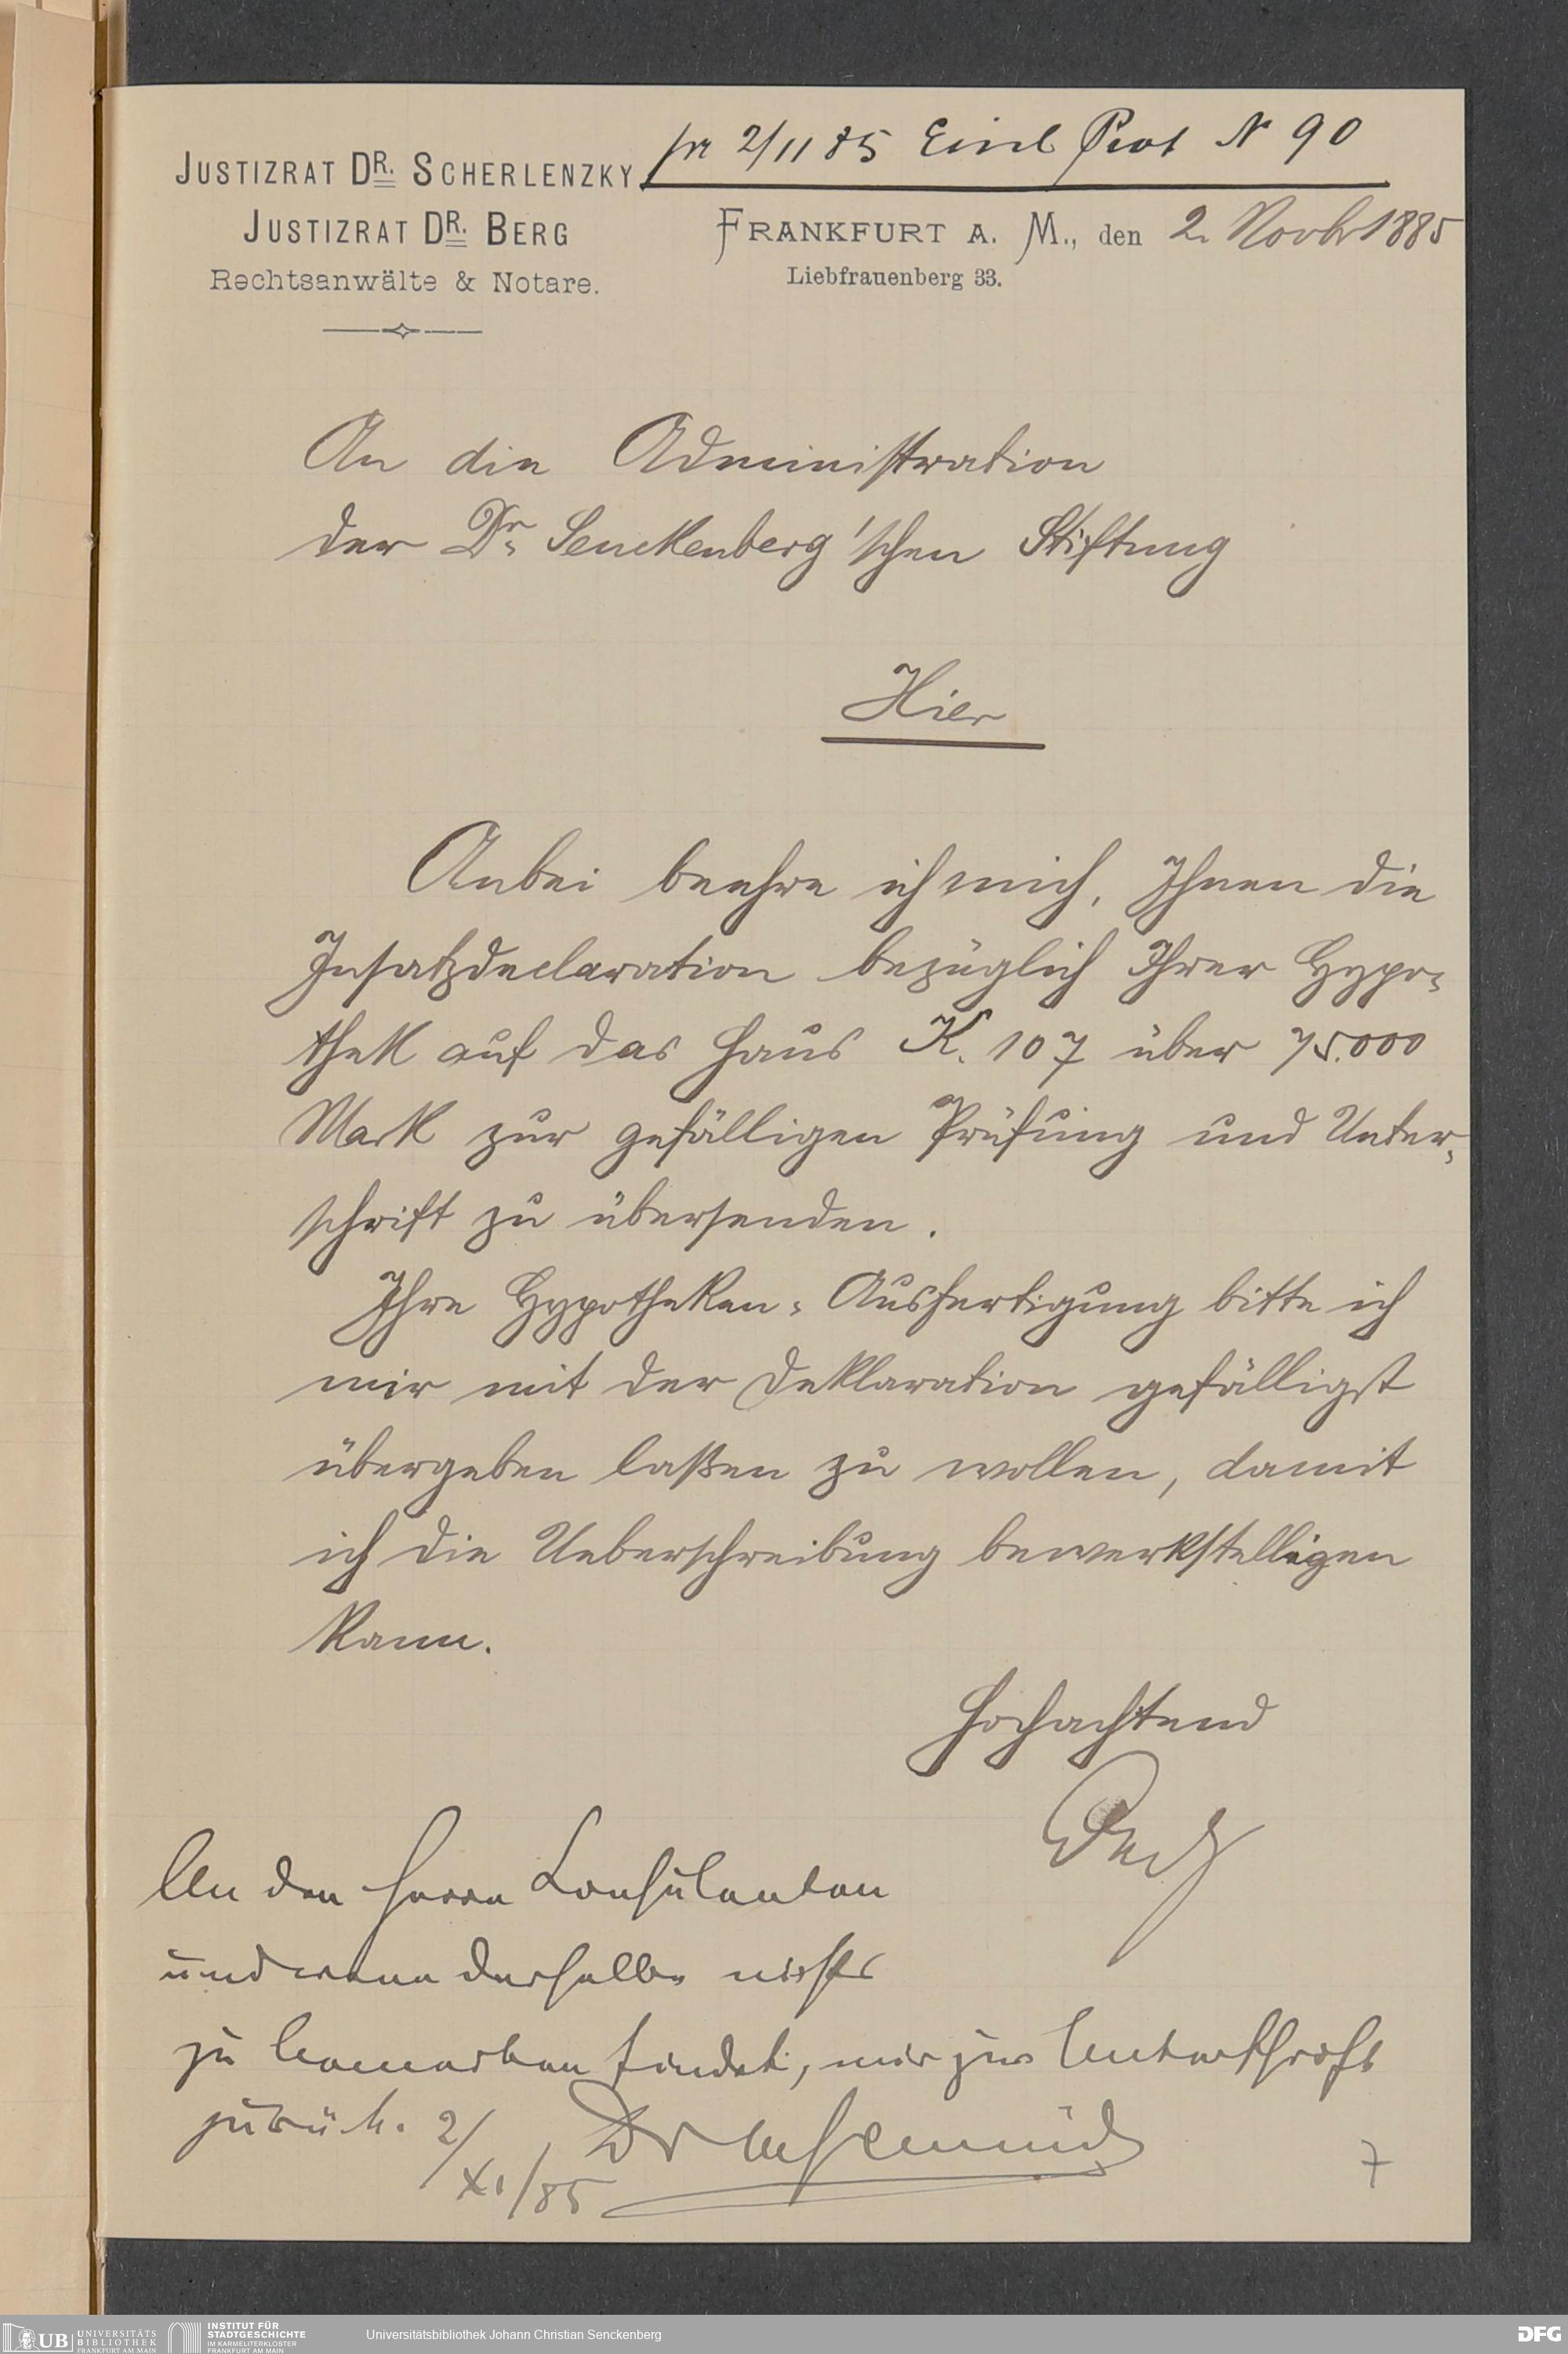 pr 2/11 85 Einl Prot N 90
JUSTIZRAT DR. SCHERLENZKY
JUSTIZRAT DR. BERG
Rechtsanwälte & Notare.
FRANKFURT A. M., den 2. Novbr 1885
Liebfrauenberg 33.
An die Administration
der Dr. Senckenberg'schen Stiftung
Hier
Anbei beehre ich mich, Ihnen die
Insatzdeclaration bezüglich Ihrer Hypo-
thek auf das Haus K. 107 über 75.000
Mark zur gefälligen Prüfung und Unter-
schrift zu übersenden.
Ihre Hypotheken-Ausfertigung bitte ich
mir mit der Deklaration gefälligst
übergeben laßen zu wollen, damit
ich die Ueberschreibung bewerkstelligen
kann.
Hochachtend
An den Herrn Consulenten
und wenn derselbe nichts
zu bemerken findet, mir zur Unterschrift
zurück. 2/XI/85 Dr
7
UB UNIVERSITÄTS BIBLIOTHEK FRANKFURT AM MAIN
INSTITUT FÜR STADTGESCHICHTE IM KARMELITERKLOSTER FRANKFURT AM MAIN
Universitätsbibliothek Johann Christian Senckenberg
DFG